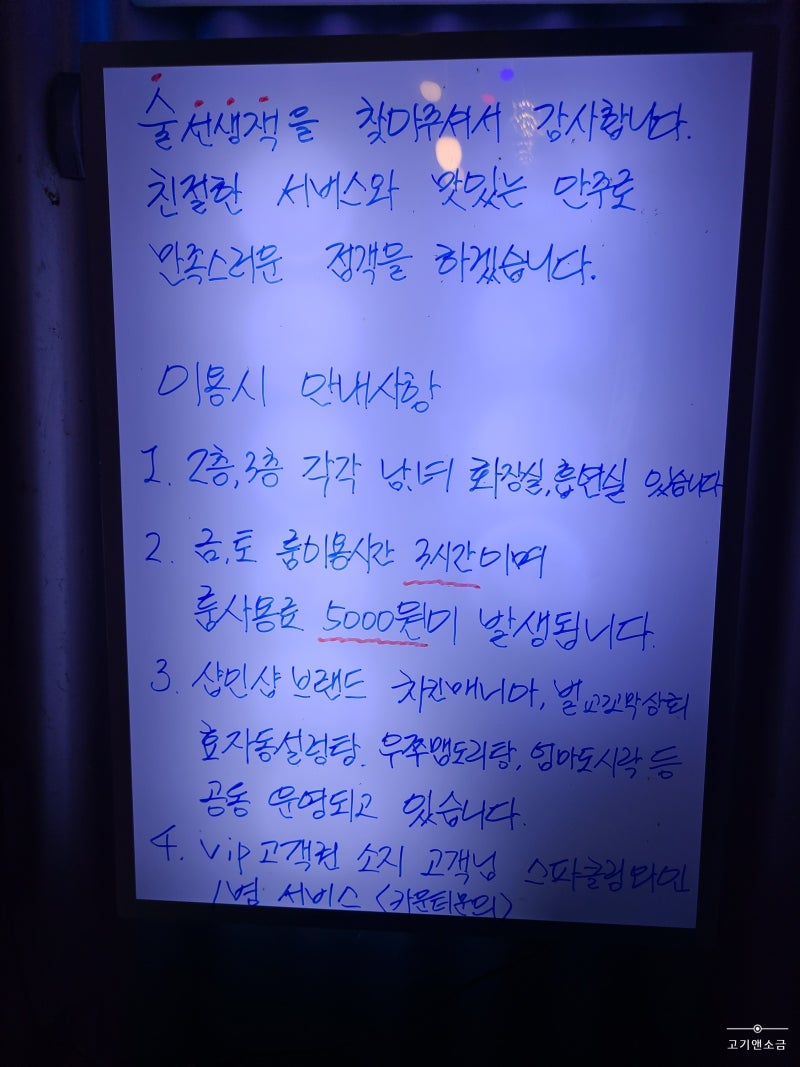 술선생객을 찾아주셔서 감사합니다.
친절한 서비스와 맛있는 안주로
만족스러운 접객을 하겠습니다.
이용시 안내사항
1. 2층,3층 각각 남,녀 화장실,흡연실 있습니다
2. 금,토 룸이용시간 3시간이며
룸사용료 5000원이 발생됩니다.
3. 샵인샵 브랜드 치킨매니아, 벌교꼬막상회
효자동설렁탕. 우쭈맵도리탕, 엄마도시락 등
공동 운영되고 있습니다.
4. vip고객권 소지 고객님 스파클링와인
1병 서비스 <카운터문의>
고기앤소금